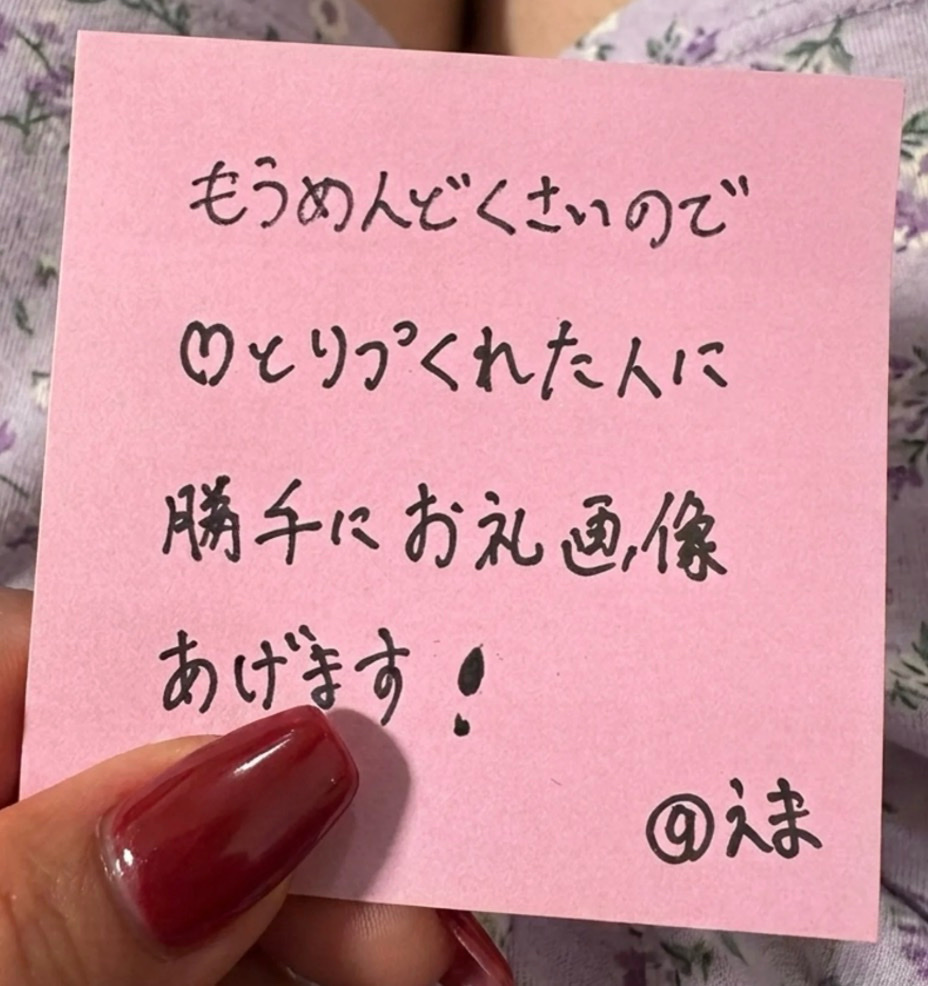 もうめんどくさいので
♡とりプくれた人に
勝手にお礼画像
あげます!
@えま